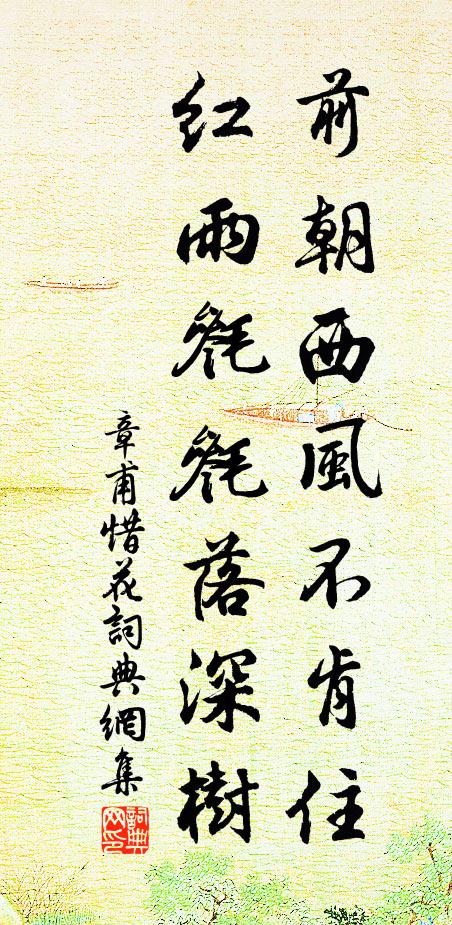 前朝西風不肯住
紅雨毿毿落深樹
章甫惜花詞典網集
詞典网印